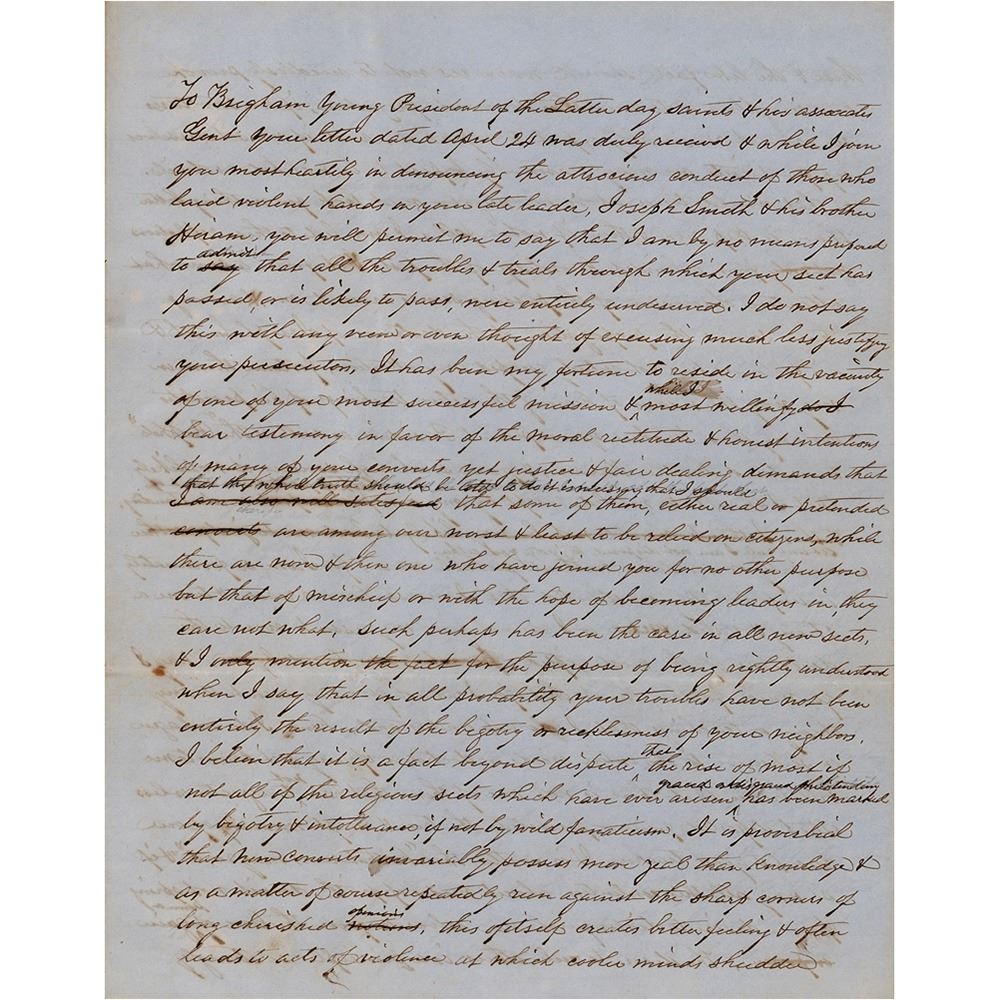 To Brigham Young President of the Latter day saints & his assocates
Gent your letter dated April 24 was duly receivd & while I join
you most heartily in denouncing the attrocious conduct of those who
laid violent hands on your late leader, Joseph Smith & his brother
Hiram, you will permit me to say that I am by no means prepared
admit
to say that all the troubles & trials through which your sect has
passed, or is likely to pass, were entirely undeserved. I do not say
this with any view or even thought of excusing much less justifying
your persecutors. It has been my fortune to reside in the vacinity
while I
of one of your most successful mission & most willingly do I
bear testimony in favor of the moral rectitude & honest intentions
of many of your converts yet justice & fair dealing demands that
that the whole truth should be told & to do it is necessary that I should
I am also well satisfied that some of them, either real or pretended
converts are among our worst & least to be relied on citizens, while
there are now & then one who have joined you for no other purpose
but that of mischief or with the hope of becoming leaders in, they
care not what, such perhaps has been the case in all new sects,
& I only mention the fact for the purpose of being rightly understood
when I say that in all probability your troubles have not been
entirely the result of the bigotry or recklessness of your neighbors.
that
I believe that it is a fact beyond dispute the rise of most if
not all of the religious sects which have ever arisen has been marked
by bigotry & intollerance if not by wild fanaticism. It is proverbial
that new converts invariably possess more zeal than knowledge &
as a matter of course repeatedly run against the sharp corners of
opinions
long cherished notions, this of itself creates bitter feeling & often
leads to acts of violence at which cooler minds shudder